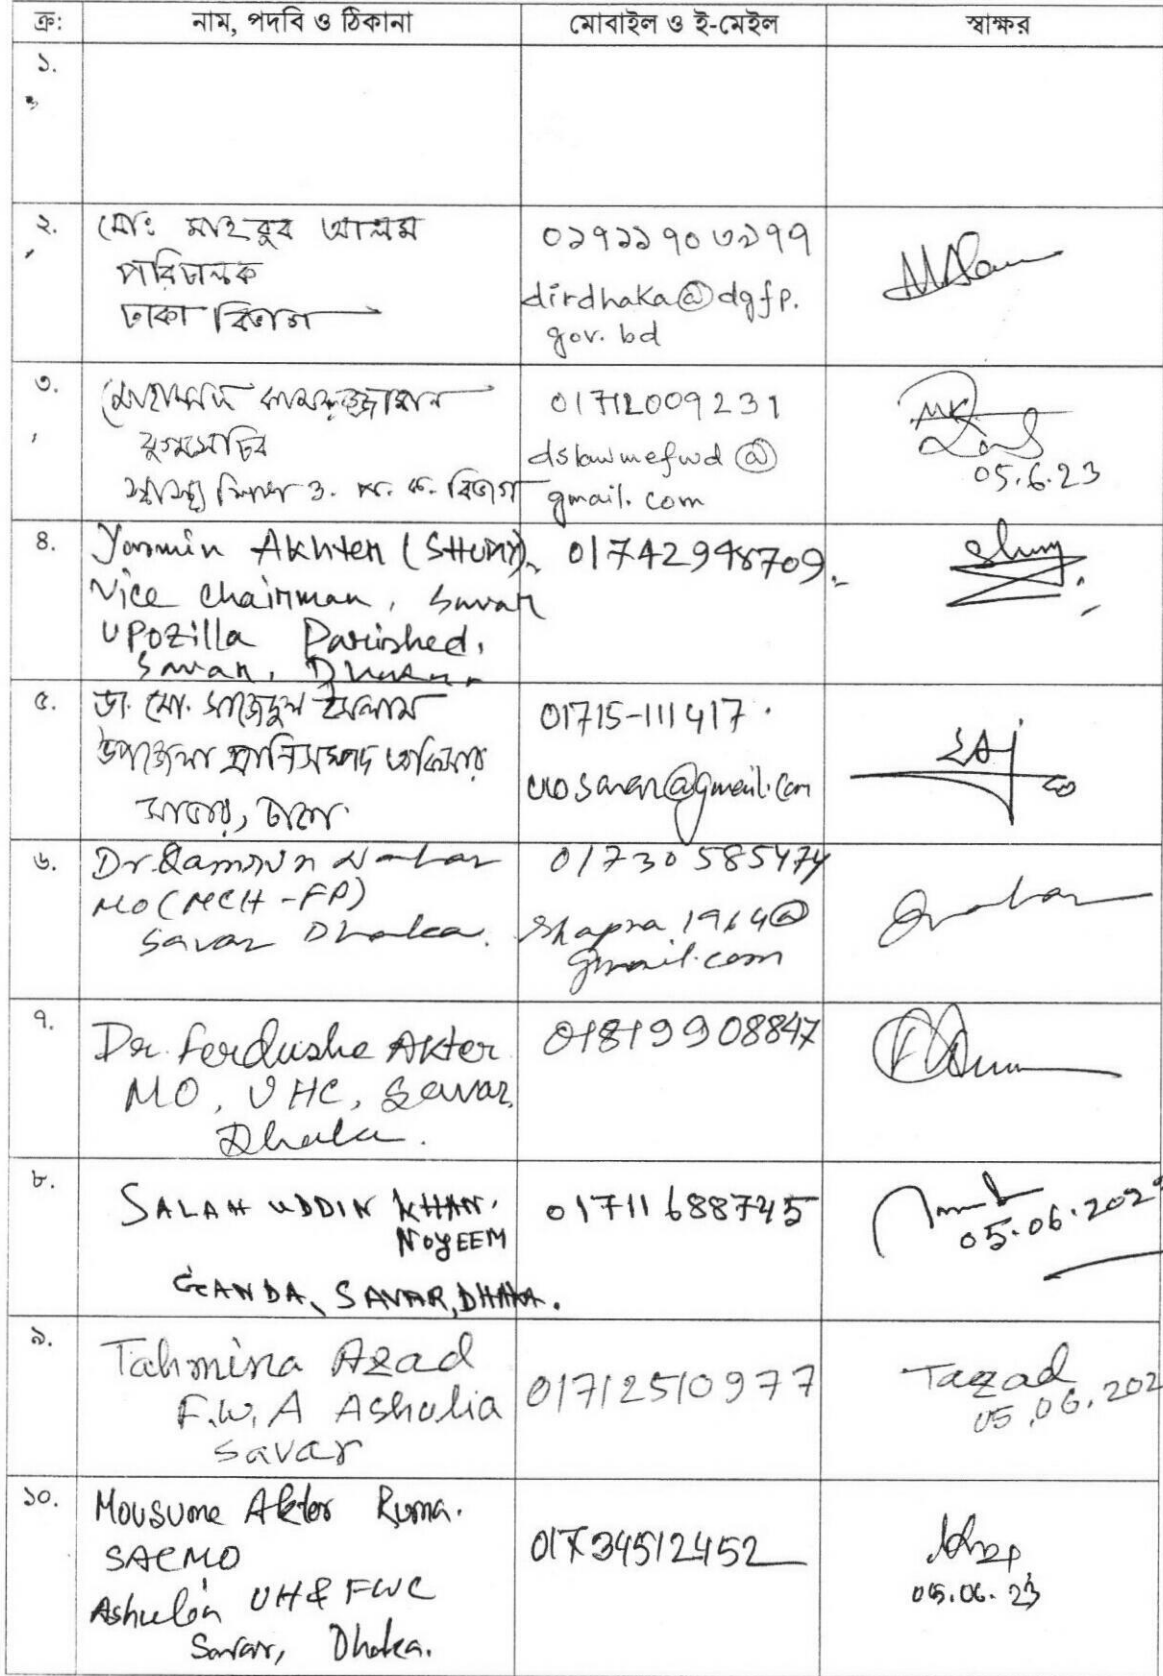 ক্র: নাম, পদবি ও ঠিকানা মোবাইল ও ই-মেইল স্বাক্ষর
১.
২. মোঃ মাহবুব আলম
পরিচালক
ঢাকা বিভাগ
dirdhaka@dgfp.
gov.bd
MAlam
৩. মোহাম্মদ কামরুজ্জামান
যুগ্মসচিব
স্বাস্থ্য শিক্ষা ও. প. ক. বিভাগ
01712009231
gmail.com
05.6.23
৪. Yasmin Akhter (SHUMY).
Vice Chairman, Savar
UPozilla Parished.
Savar, Dhaka.
01742998709.
Shumy
৫. ডা. মো. সাজেদুল ইসলাম
উপজেলা প্রানিসম্পদ অফিসার
সাভার, ঢাকা.
01715-111417.
৬. Dr. Qamrun Nahar
MO (MCH-FP)
Savar Dhaka.
01730585474
Shapna1964@
gmail.com
৭. Dr. Ferdushe Akter
MO, UHC, Savar,
Dhaka.
01819908847
৮. SALAH UDDIN KHAN.
NOYEEM
GEANDA, SAVAR, DHAKA.
01711688745
05.06.202
৯. Tahmina Azad
F.W.A Ashulia
Savar
01712510977
Tazad
05.06.202
১০. Mousume Akter Ruma.
SACMO
Ashulia UH & FWC
Savar, Dhaka.
01734512452
05.06.23